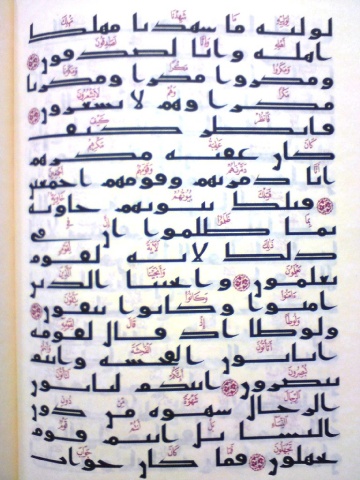 لوليه ما شهدنا مهلك
اهله وانا لصدقون
ومكروا مكرا ومكرنا
مكرا وهم لا يشعرون
فانظر كيف
كان عقبه مكرهم
انا دمرنهم وقومهم اجمعين
فتلك بيوتهم خاويه
بما ظلموا ان في
ذلك لايه لقوم
يعلمون وانجينا الذين
امنوا وكانوا يتقون
ولوطا اذ قال لقومه
اتاتون الفحشه وانتم
تبصرون اينكم لتاتون
الرجال شهوه من دون
النسا بل انتم قوم
تجهلون فما كان جواب